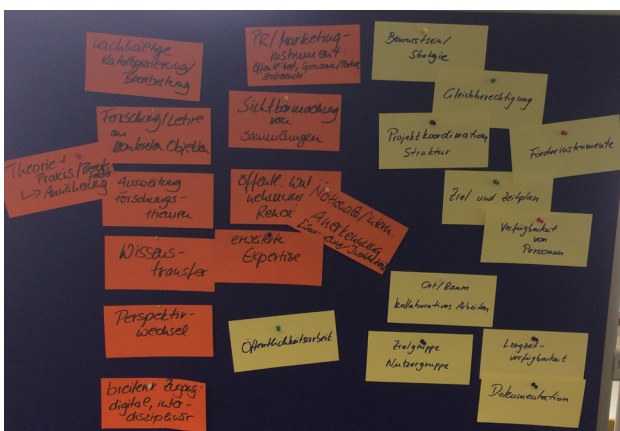 nachhaltige
Katalogisierung/
Bearbeitung
Forschung/Lehre
an
konkreten Objekten
Theorie +
Praxis/
↳ Annäherung
Ausweitung
Forschungs-
themen
Wissens-
transfer
Perspektiv-
wechsel
breiterer Zugang:
digitale, inter-
disziplinär
PR/Marketing-
instrument
Öffentlichkeit, Sponsoren/
Studierende
Sichtbarmachung
von
Sammlungen
Öffentl. Wahr-
nehmung
Nationale/intern.
Anerkennung
erweiterte
Expertise
Öffentlichkeitsarbeit
Bewusstsein/
Strategie
Gleichberechtigung
Projektkoordination
Struktur
Förderinstrumente
Ziel und Zeitplan
Verfügbarkeit
von
Personen
Ort/Raum
kollaboratives Arbeiten
Zielgruppe
Nutzergruppe
Langzeit-
verfügbarkeit
Dokumentation